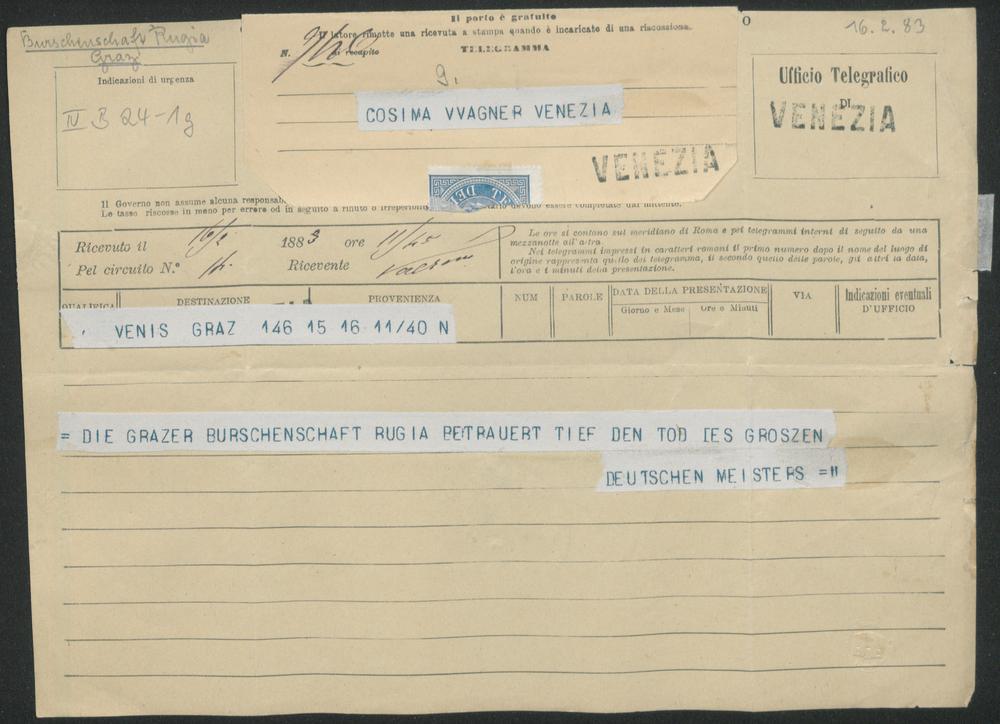 Burschenschaft Rugia
Graz
16.2.83
Il porto è gratuito
latore rimette una ricevuta a stampa quando è incaricato di una riscossione.
N.
recapito
TELEGRAMMA
9.
Indicazioni di urgenza
IV B 24-1g
COSIMA VVAGNER VENEZIA
VENEZIA
Ufficio Telegrafico
DI
VENEZIA
Il Governo non assume alcuna responsab
Le tasse riscosse in meno per errore od in seguito a rifiuto o irreperibil
devono essere completate dal mittente.
Ricevuto il 16/2 1883 ore 11/45
Pel circuito N.° Ricevente
Le ore si contano sul meridiano di Roma e pei telegrammi interni di seguito da una
mezzanotte all'altra.
Nei telegrammi impressi in caratteri romani il primo numero dopo il nome del luogo di
origine rappresenta quello del telegramma, il secondo quello delle parole, gli altri la data,
l'ora e i minuti della presentazione.
QUALIFICA DESTINAZIONE PROVENIENZA NUM PAROLE DATA DELLA PRESENTAZIONE VIA Indicazioni eventuali
Giorno e Mese Ore e Minuti D'UFFICIO
VENIS GRAZ 146 15 16 11/40 N
= DIE GRAZER BURSCHENSCHAFT RUGIA BETRAUERT TIEF DEN TOD DES GROSZEN
DEUTSCHEN MEISTERS =